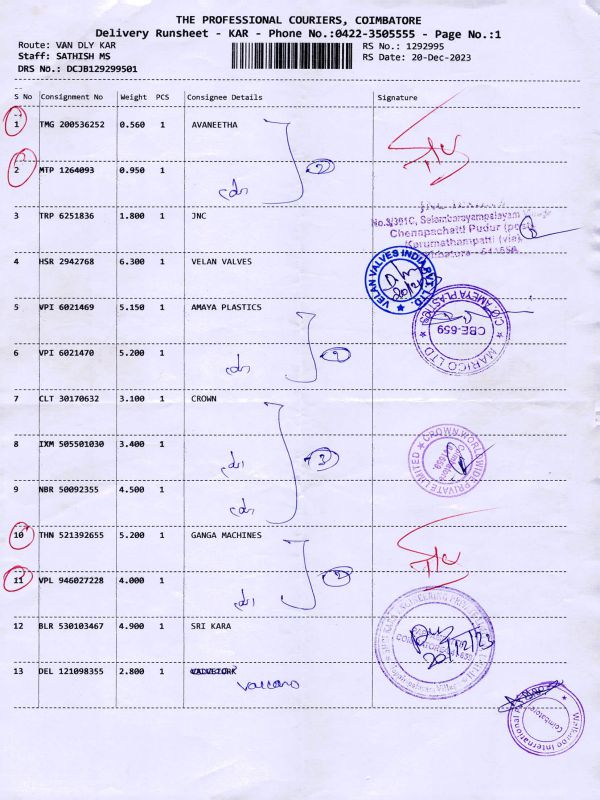 THE PROFESSIONAL COURIERS, COIMBATORE
Delivery Runsheet - KAR - Phone No.:0422-3505555 - Page No.:1
Route: VAN DLY KAR RS No.: 1292995
Staff: SATHISH MS RS Date: 20-Dec-2023
DRS No.: DCJB129299501
S No Consignment No Weight PCS Consignee Details Signature
1 TMG 200536252 0.560 1 AVANEETHA
2 MTP 1264093 0.950 1
3 TRP 6251836 1.800 1 JNC
No.3/391C, Selambarayampalayam
Chenapachatti Pudur (post
Karumathampatti (via)
4 HSR 2942768 6.300 1 VELAN VALVES
VELAN VALVES INDIA PVT. LTD.
5 VPI 6021469 5.150 1 AMAYA PLASTICS
C/O AMEYA PLASTICS
CBE-659
MARICO LTD
6 VPI 6021470 5.200 1
7 CLT 30170632 3.100 1 CROWN
8 IXM 505501030 3.400 1
3
CROWN WORLDWIDE PRIVATE LIMITED
9 NBR 50092355 4.500 1
10 THN 521392655 5.200 1 GANGA MACHINES
11 VPL 946027228 4.000 1
2
12 BLR 530103467 4.900 1 SRI KARA
20/12/23
13 DEL 121098355 2.800 1
Walkaroo International
Coimbatore